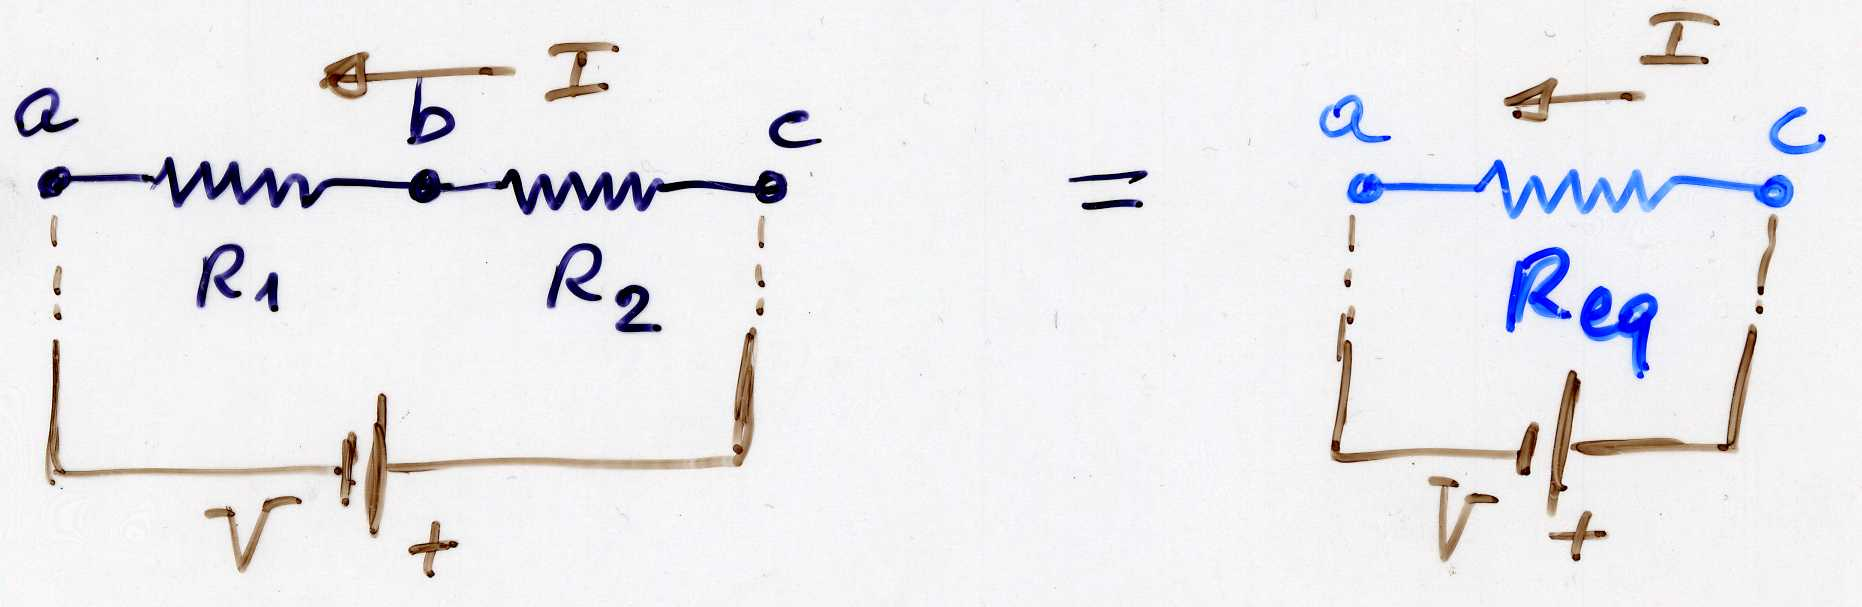 I
a b c
R1 R2
V +
=
I
a c
Req
V +